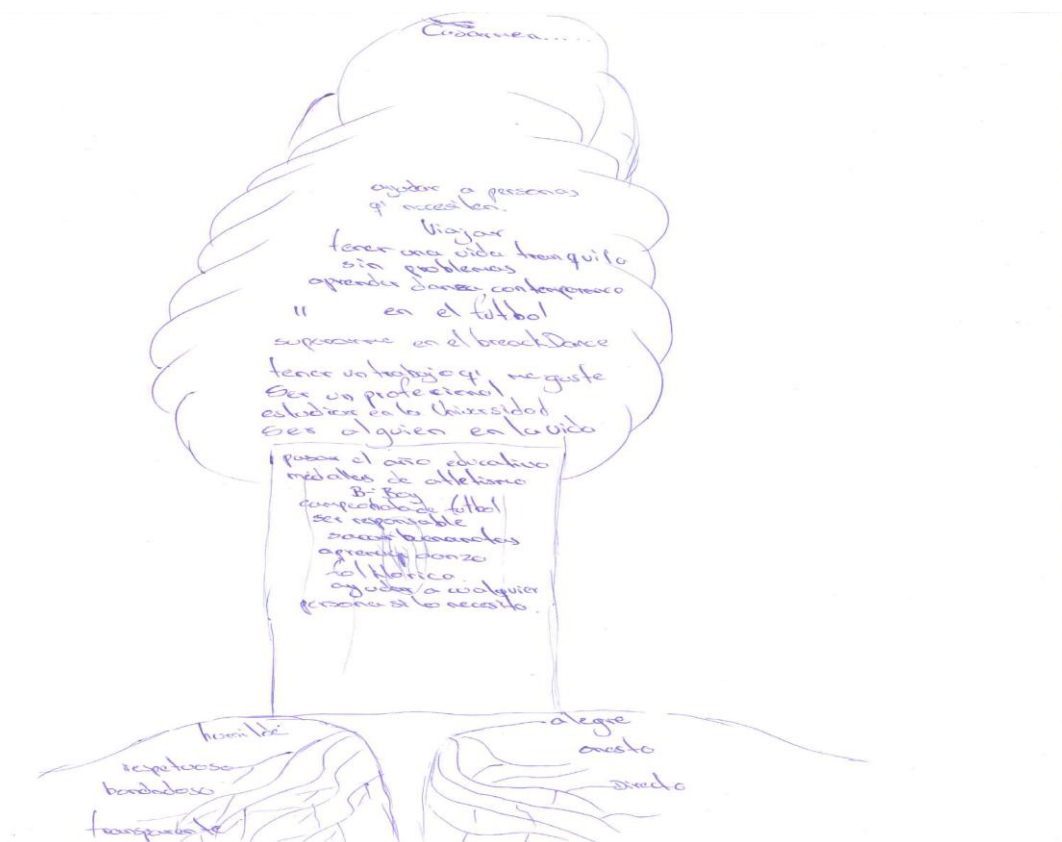 Casarmen.....
ayudar a personas
q' necesiten.
Viajar
tener una vida tranquila
sin problemas
aprender danza contemporanea
" en el futbol
superarme en el breackDance
tener un trabajo q' me guste
Ser un profesional
estudiar en la Universidad
Ser alguien en la vida
pasar el año educativo
medallas de atletismo
B-Boy
campeonato de futbol
ser responsable
sacar buenas notas
aprender danza
folklorica
ayudar a cualquier
persona si lo necesita.
humilde
respetuoso
bondadoso
transparente
alegre
onesto
Directo